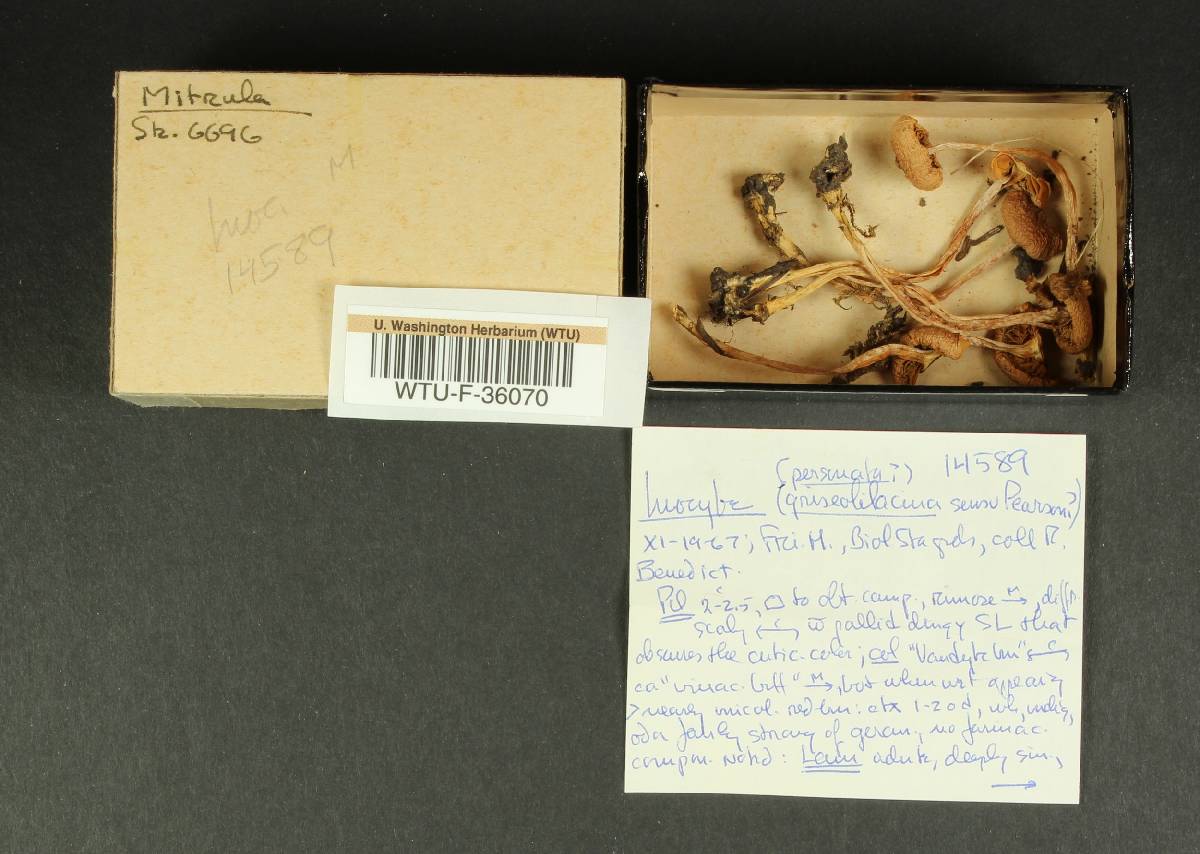 Mitrula
Sk. 6696
M
Inoc.
14589
U. Washington Herbarium (WTU)
WTU-F-36070
(personata?) 14589
Inocybe (griseolilacina sensu Pearson?)
XI-19-67; Fri. H., Biol Sta grds, coll R.
Benedict.
Pil 2-2.5, to obt camp., rimose M, diffr.
scaly c pallid dingy SL that
obscures the cutic. color; col "Vandyke brn" c
ca "vinac. buff" M, but when wet appearing
> nearly unicol. red brn: ctx 1-2 od, wh,
odor fairly strong of geran., no farinac.
compon. noted: Lam adnate, deeply sin.,